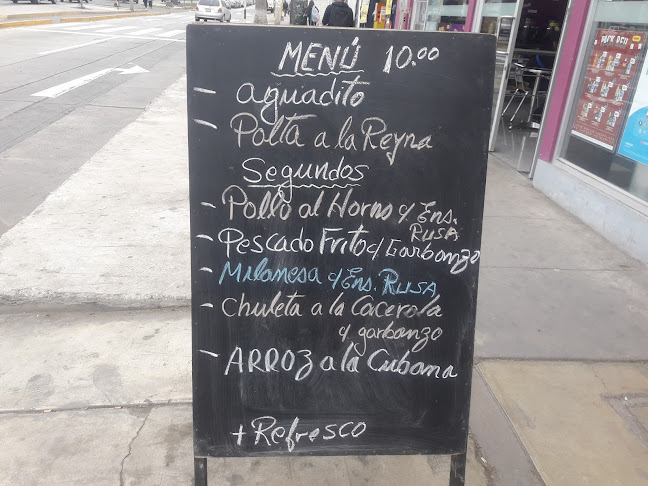 MENÚ 10.00
- aguadito
- Palta a la Reyna
Segundos
- Pollo al Horno c/ Ens. RUSA
- Pescado Frito c/ Garbanzo
- Milanesa c/ Ens. RUSA
- chuleta a la Cacerola
c/ garbanzo
- ARROZ a la Cubana
+ Refresco